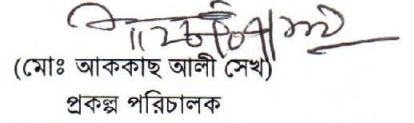 (মোঃ আককাছ আলী সেখ)
প্রকল্প পরিচালক